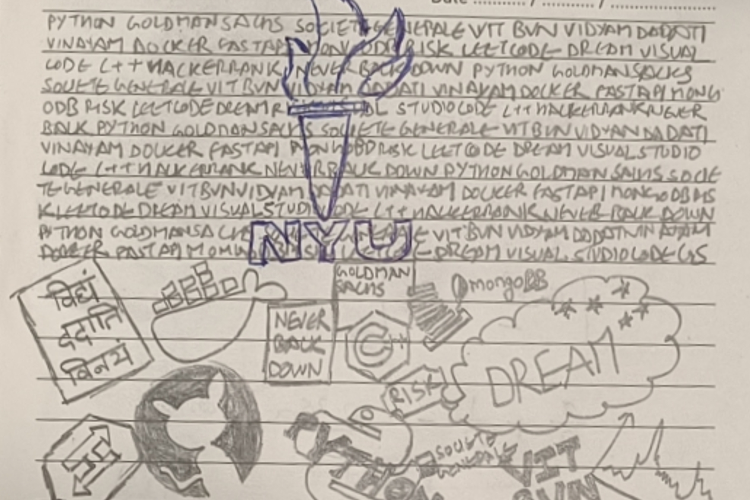 Date
PYTHON GOLDMANSACHS SOCIETE GENERALE VIT BVN VIDYAM DADATI
VINAYAM DOCKER FASTAPI MONGODB RISK LEETCODE DREAM VISUAL
CODE C++ HACKERRANK NEVER BACK DOWN PYTHON GOLDMANSACKS
SOCIETE GENERALE VIT BVN VIDYAM DADATI VINAYAM DOCKER FASTAPI MONG
ODB RISK LEETCODE DREAM STUDIO CODE C++ HACKERRANK NEVER
BACK PYTHON GOLDMANSACHS SOCIETE GENERALE VIT BVN VIDYAM DADATI
VINAYAM DOCKER FASTAPI MONGODB RISK LEETCODE DREAM VISUAL STUDIO
CODE C++ HACKERRANK NEVER BACK DOWN PYTHON GOLDMAN SACHS SOCIE
TE GENERALE VIT BVN VIDYAM DADATI VINAYAM DOCKER FASTAPI MONGODB
LEETCODE DREAM VISUAL STUDIO CODE C++ HACKERRANK NEVER BACK DOWN
PYTHON GOLDMANSACHS GENERALE VIT BVN VIDYAM DADATI VINAYAM
DOCKER FASTAPI DREAM VISUAL STUDIO CODE
NYU
विद्यं
ददाति
विनयं
GOLDMAN
SACHS
mongoDB
NEVER
BACK
DOWN
C++
DREAM
RISK
SOCIETE
GENERALE
VIT
BVN